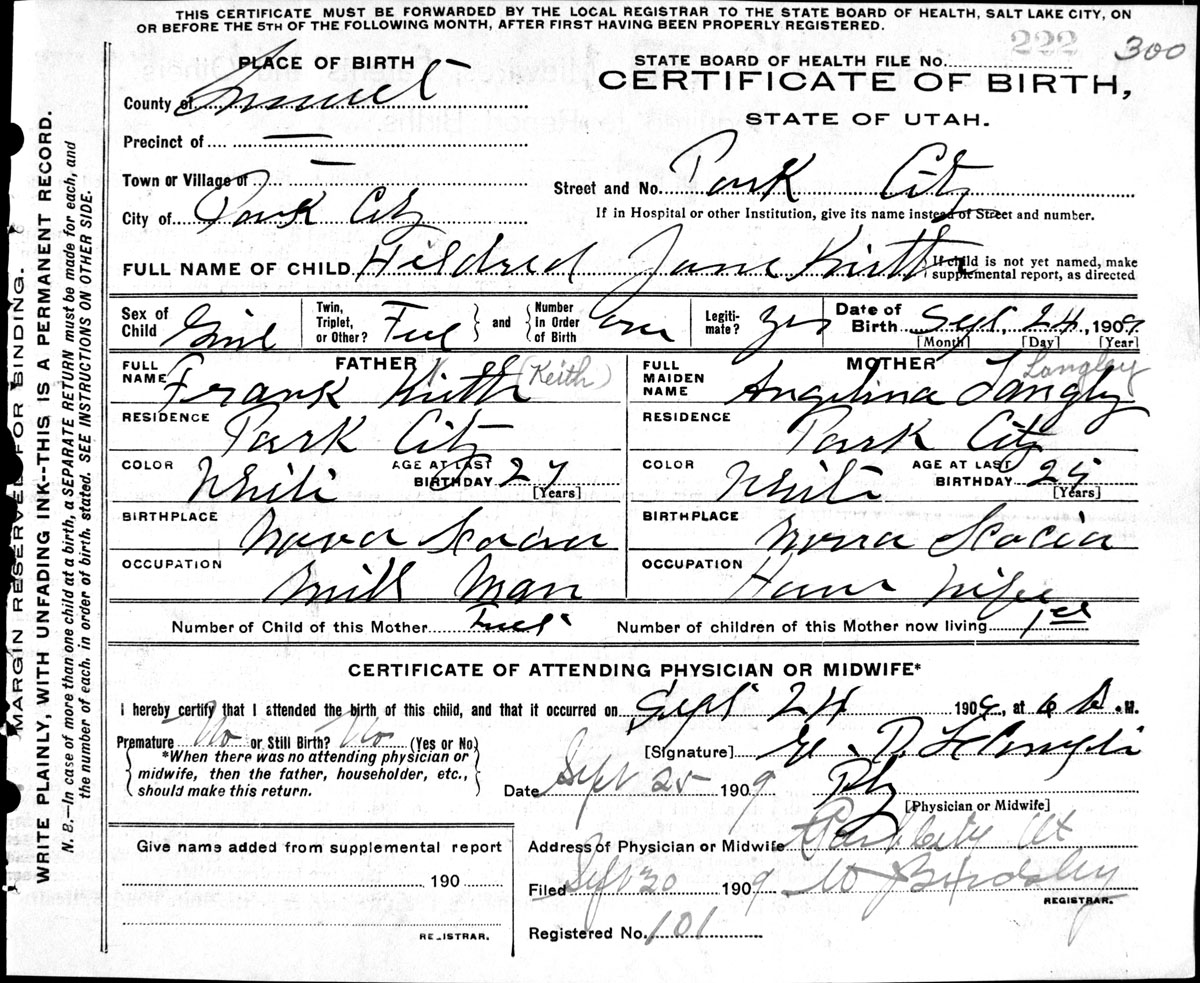 THIS CERTIFICATE MUST BE FORWARDED BY THE LOCAL REGISTRAR TO THE STATE BOARD OF HEALTH, SALT LAKE CITY, ON
OR BEFORE THE 5TH OF THE FOLLOWING MONTH, AFTER FIRST HAVING BEEN PROPERLY REGISTERED.
222 300
PLACE OF BIRTH
STATE BOARD OF HEALTH FILE No.
CERTIFICATE OF BIRTH,
STATE OF UTAH.
County of
Precinct of —
Town or Village of —
City of Park City
Street and No. Park City
If in Hospital or other Institution, give its name instead of Street and number.
FULL NAME OF CHILD Hildred Jane Kieth
If child is not yet named, make
supplemental report, as directed
Sex of Child Girl
Twin, Triplet, or Other?
and
Number in Order of Birth one
Legitimate? yes
Date of Birth Sept 24, 1909
[Month] [Day] [Year]
FATHER
FULL NAME Frank Kieth (Keith)
RESIDENCE Park City
COLOR White AGE AT LAST BIRTHDAY 27 [Years]
BIRTHPLACE Nova Scocia
OCCUPATION Mill Man
MOTHER
FULL MAIDEN NAME Angelina Langly Langley
RESIDENCE Park City
COLOR White AGE AT LAST BIRTHDAY 25 [Years]
BIRTHPLACE Nova Scocia
OCCUPATION House Wife
Number of Child of this Mother
Number of children of this Mother now living 1
CERTIFICATE OF ATTENDING PHYSICIAN OR MIDWIFE*
I hereby certify that I attended the birth of this child, and that it occurred on Sept 24 1909, at 6 A.M.
Premature No or Still Birth? No (Yes or No)
*When there was no attending physician or
midwife, then the father, householder, etc.,
should make this return.
[Signature]
Date Sept 25 1909 Phy
[Physician or Midwife]
Give name added from supplemental report
190
REGISTRAR.
Address of Physician or Midwife Park City Ut
Filed Sept 30 1909 Birdsley
REGISTRAR.
Registered No. 101
MARGIN RESERVED FOR BINDING.
WRITE PLAINLY, WITH UNFADING INK--THIS IS A PERMANENT RECORD.
N. B.—In case of more than one child at a birth, a SEPARATE RETURN must be made for each, and
the number of each, in order of birth, stated. SEE INSTRUCTIONS ON OTHER SIDE.